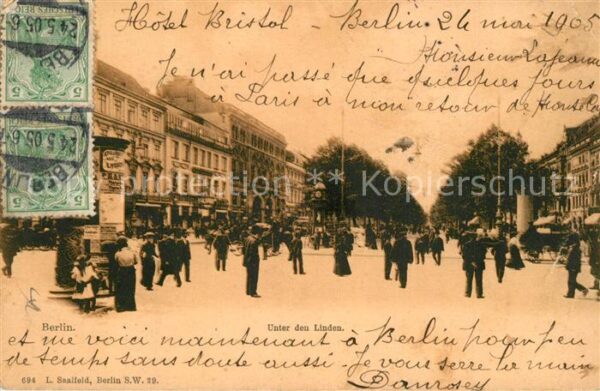 Hôtel Bristol - Berlin 24 mai 1905
Monsieur
Je n'ai passé que quelques jours
à Paris à mon retour de
5
BERLIN
24.5.05.6
5
BERLIN
24.5.05.6
Copyright Kopierschutz
Berlin.
Unter den Linden.
et me voici maintenant à Berlin pour peu
de temps sans doute aussi. Je vous serre la main
694 L. Saalfeld, Berlin S.W. 29.